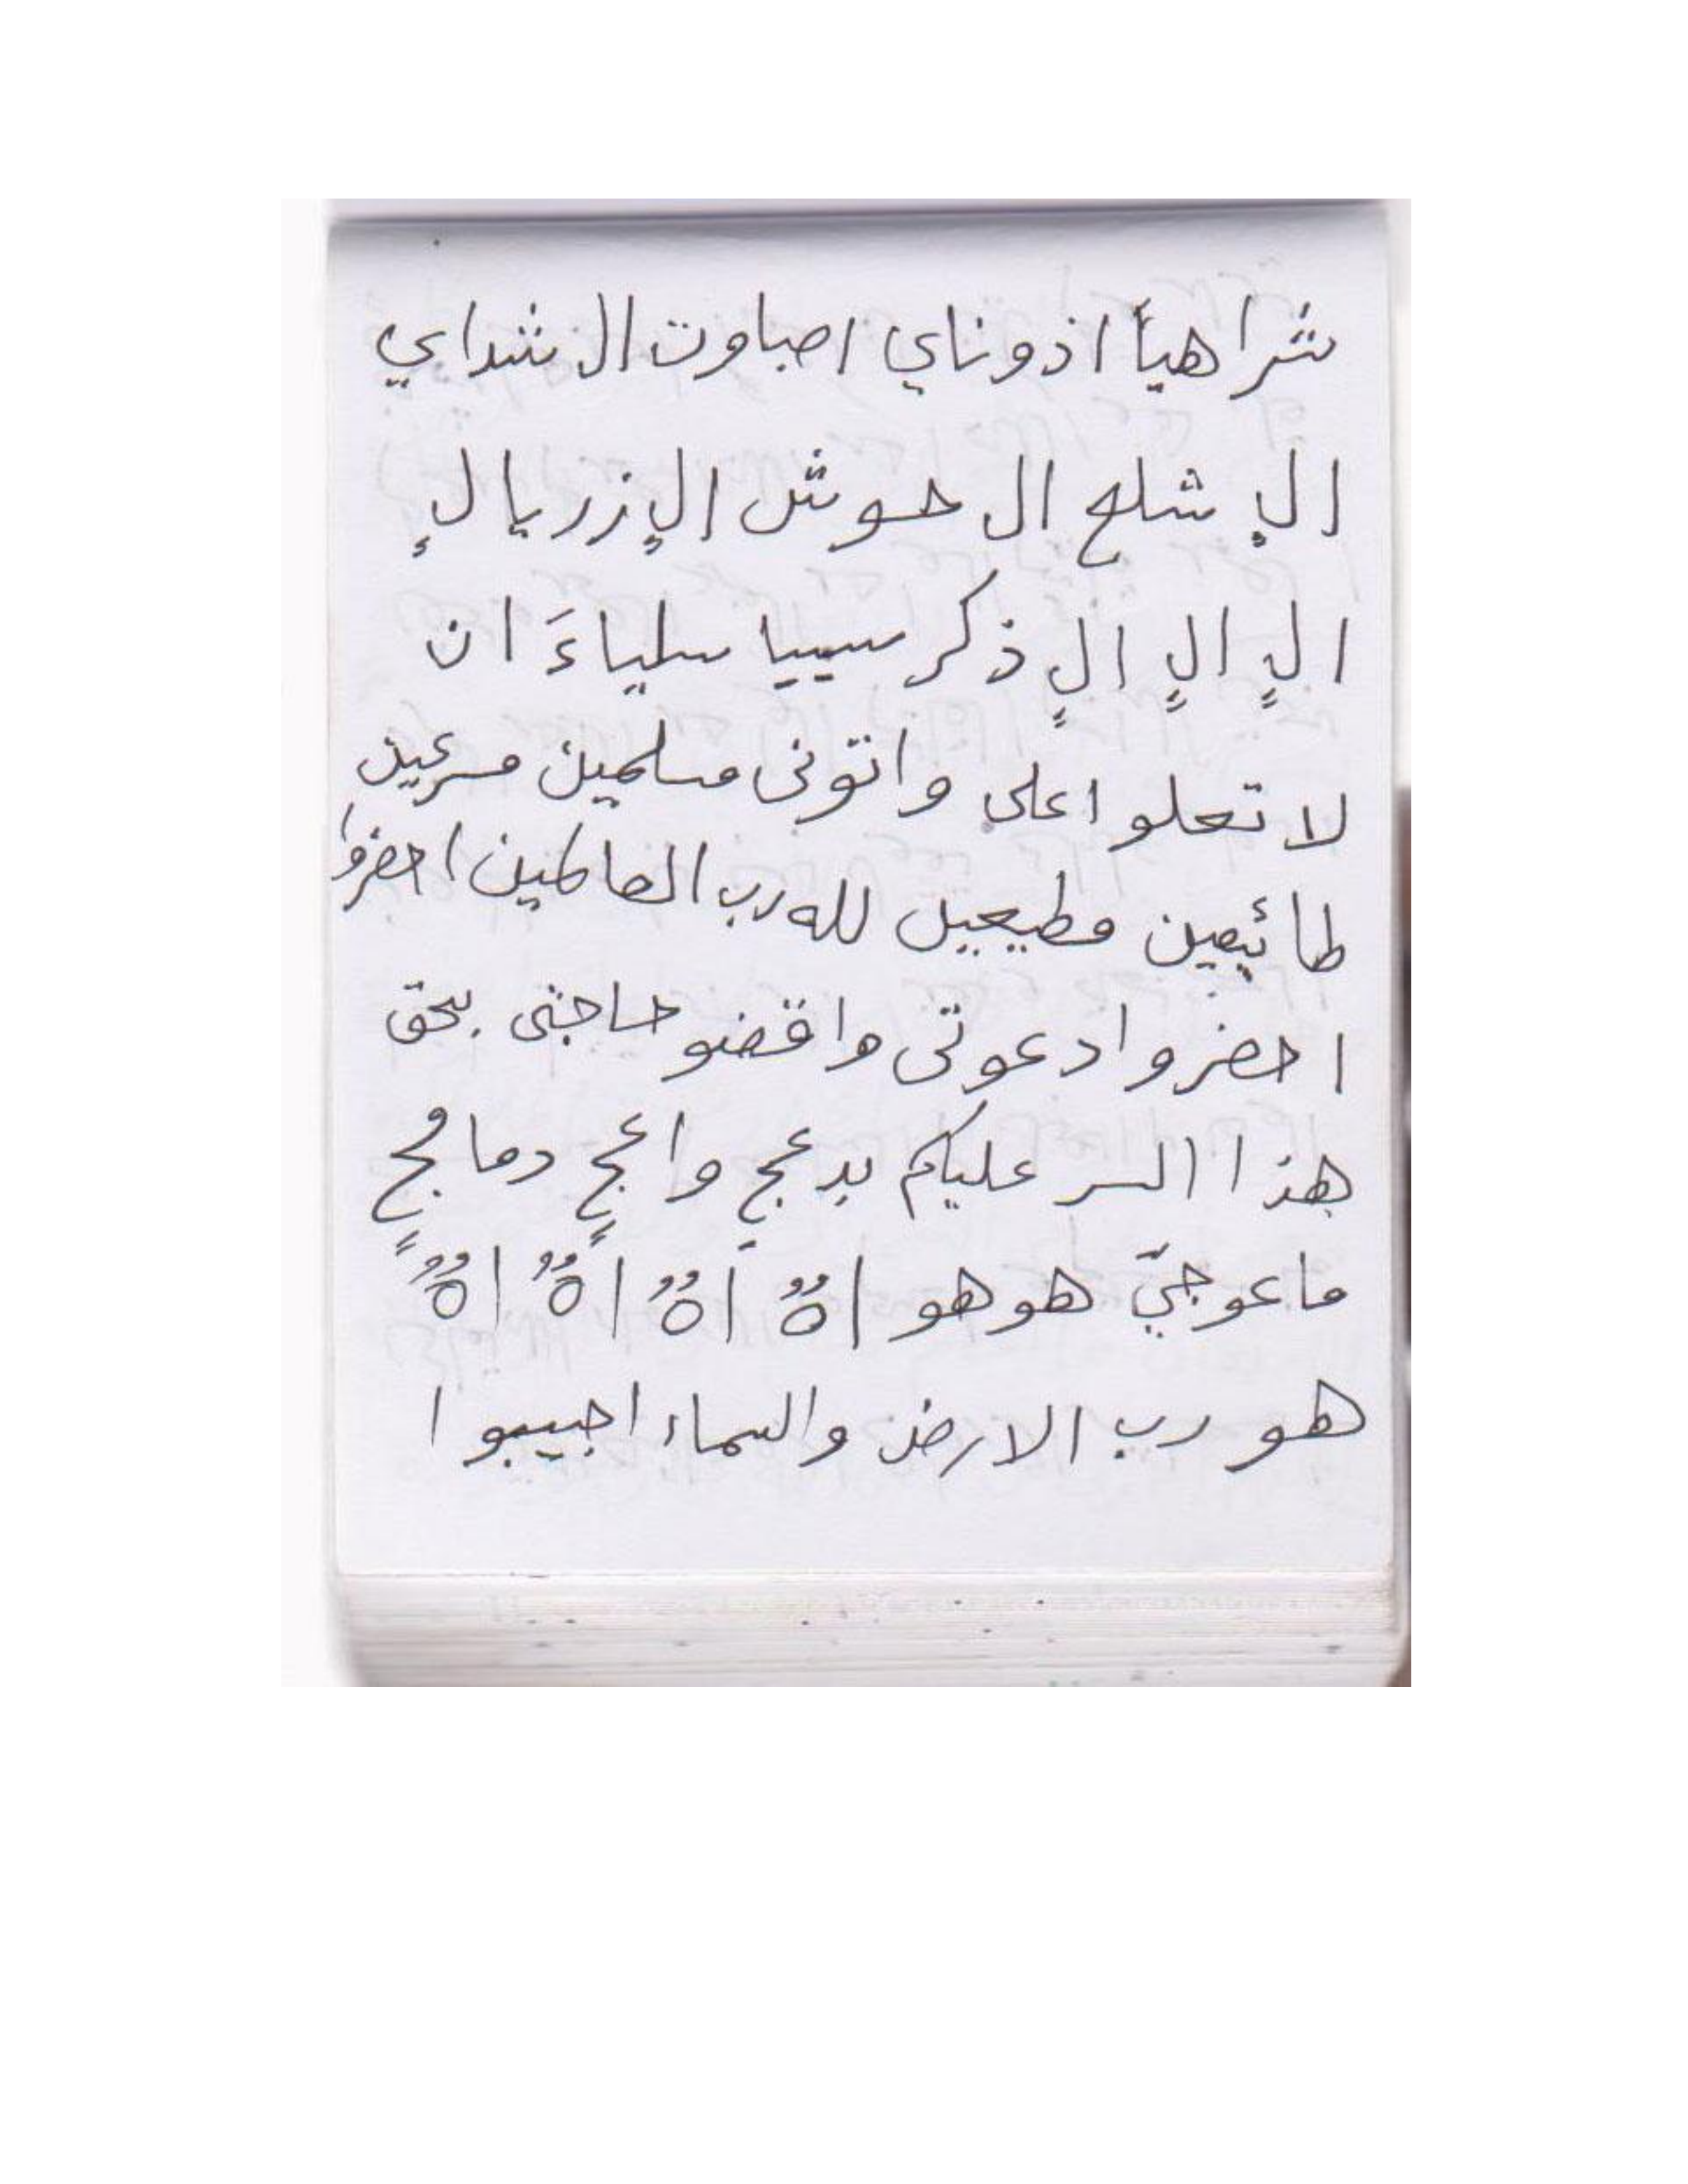 شراهياً اذوناي اصباوت ال شداي
الٍ شلع ال حوش الٍ زريالٍ
الٍ الٍ الٍ ذكر سييا سلياءَ ان
لا تعلوا على واتونى مسلمين مسرعين
طائيعين مطيعين لله رب العالمين احضروا
احضروا دعوتى واقضو حاجتى بحق
هذا السر عليكم بدعجٍ واعجٍ دمامجٍ
ماعوجيّ هو هو اهٌ اهٌ اهٌ اهٌ
هو رب الارض والسماء اجيبوا